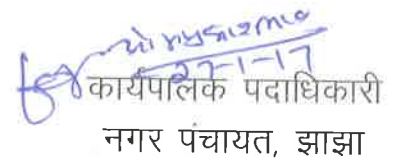 27-1-17
कार्यपालक पदाधिकारी
नगर पंचायत, झाझा